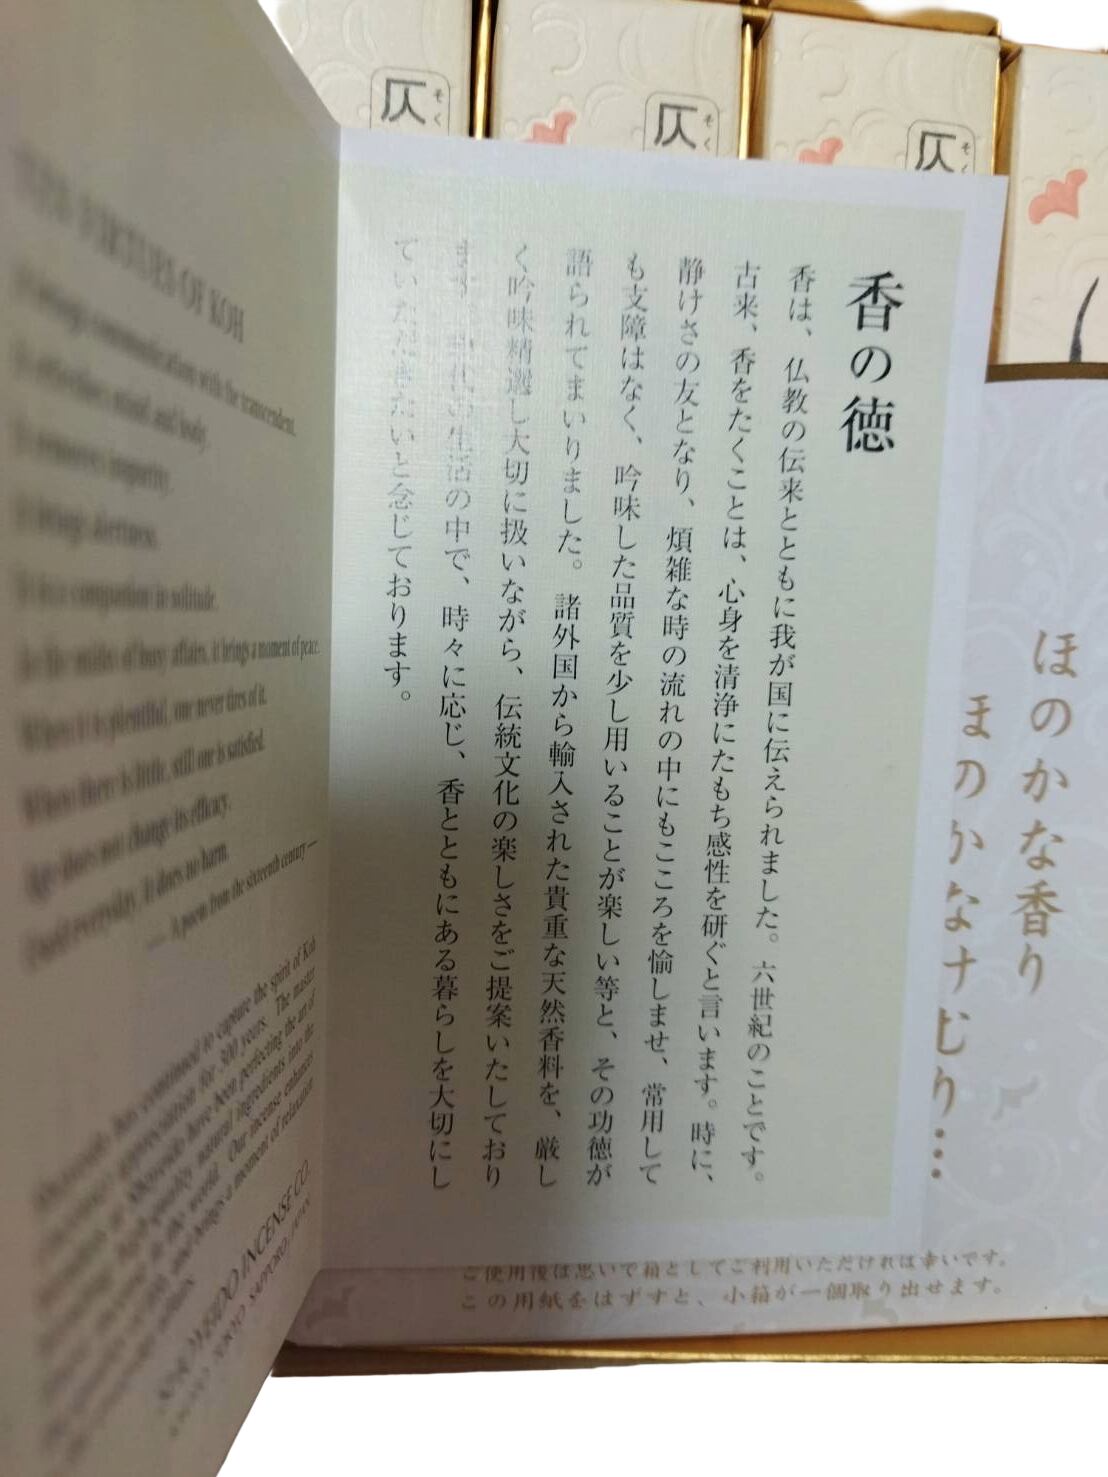 香の徳
香は、仏教の伝来とともに我が国に伝えられました。六世紀のことです。
古来、香をたくことは、心身を清浄にたもち感性を研ぐと言います。時に、
静けさの友となり、煩雑な時の流れの中にもこころを愉しませ、常用して
も支障はなく、吟味した品質を少し用いることが楽しい等と、その功徳が
語られてまいりました。諸外国から輸入された貴重な天然香料を、厳し
く吟味精選し大切に扱いながら、伝統文化の楽しさをご提案いたしており
ます。現代の生活の中で、時々に応じ、香とともにある暮らしを大切にし
ていただきたいと念じております。
ほのかな香り
ほのかな
ご使用後は思いで箱としてご利用いただければ幸いです。
この用紙をはずすと、小箱が一個取り出せます。
仄 そく
仄 そく
仄 そく
VIRTUES OF KOH
communication with the transcendent.
mind and body.
impurity.
alertness.
is a companion in solitude.
midst of busy affairs, it brings a moment of peace.
When it is plentiful, one never tires of it.
When there is little, still one is satisfied.
Age does not change its efficacy.
Used everyday, it does no harm.
— A poem from the sixteenth century —
has continued to capture the spirit of Koh
appreciation for 300 years. The master
have been perfecting the art of
natural ingredients into the
in the world. Our incense enhances
and brings a moment of relaxation
SHOYEIDO INCENSE CO.
KYOTO TOKYO SAPPORO, JAPAN